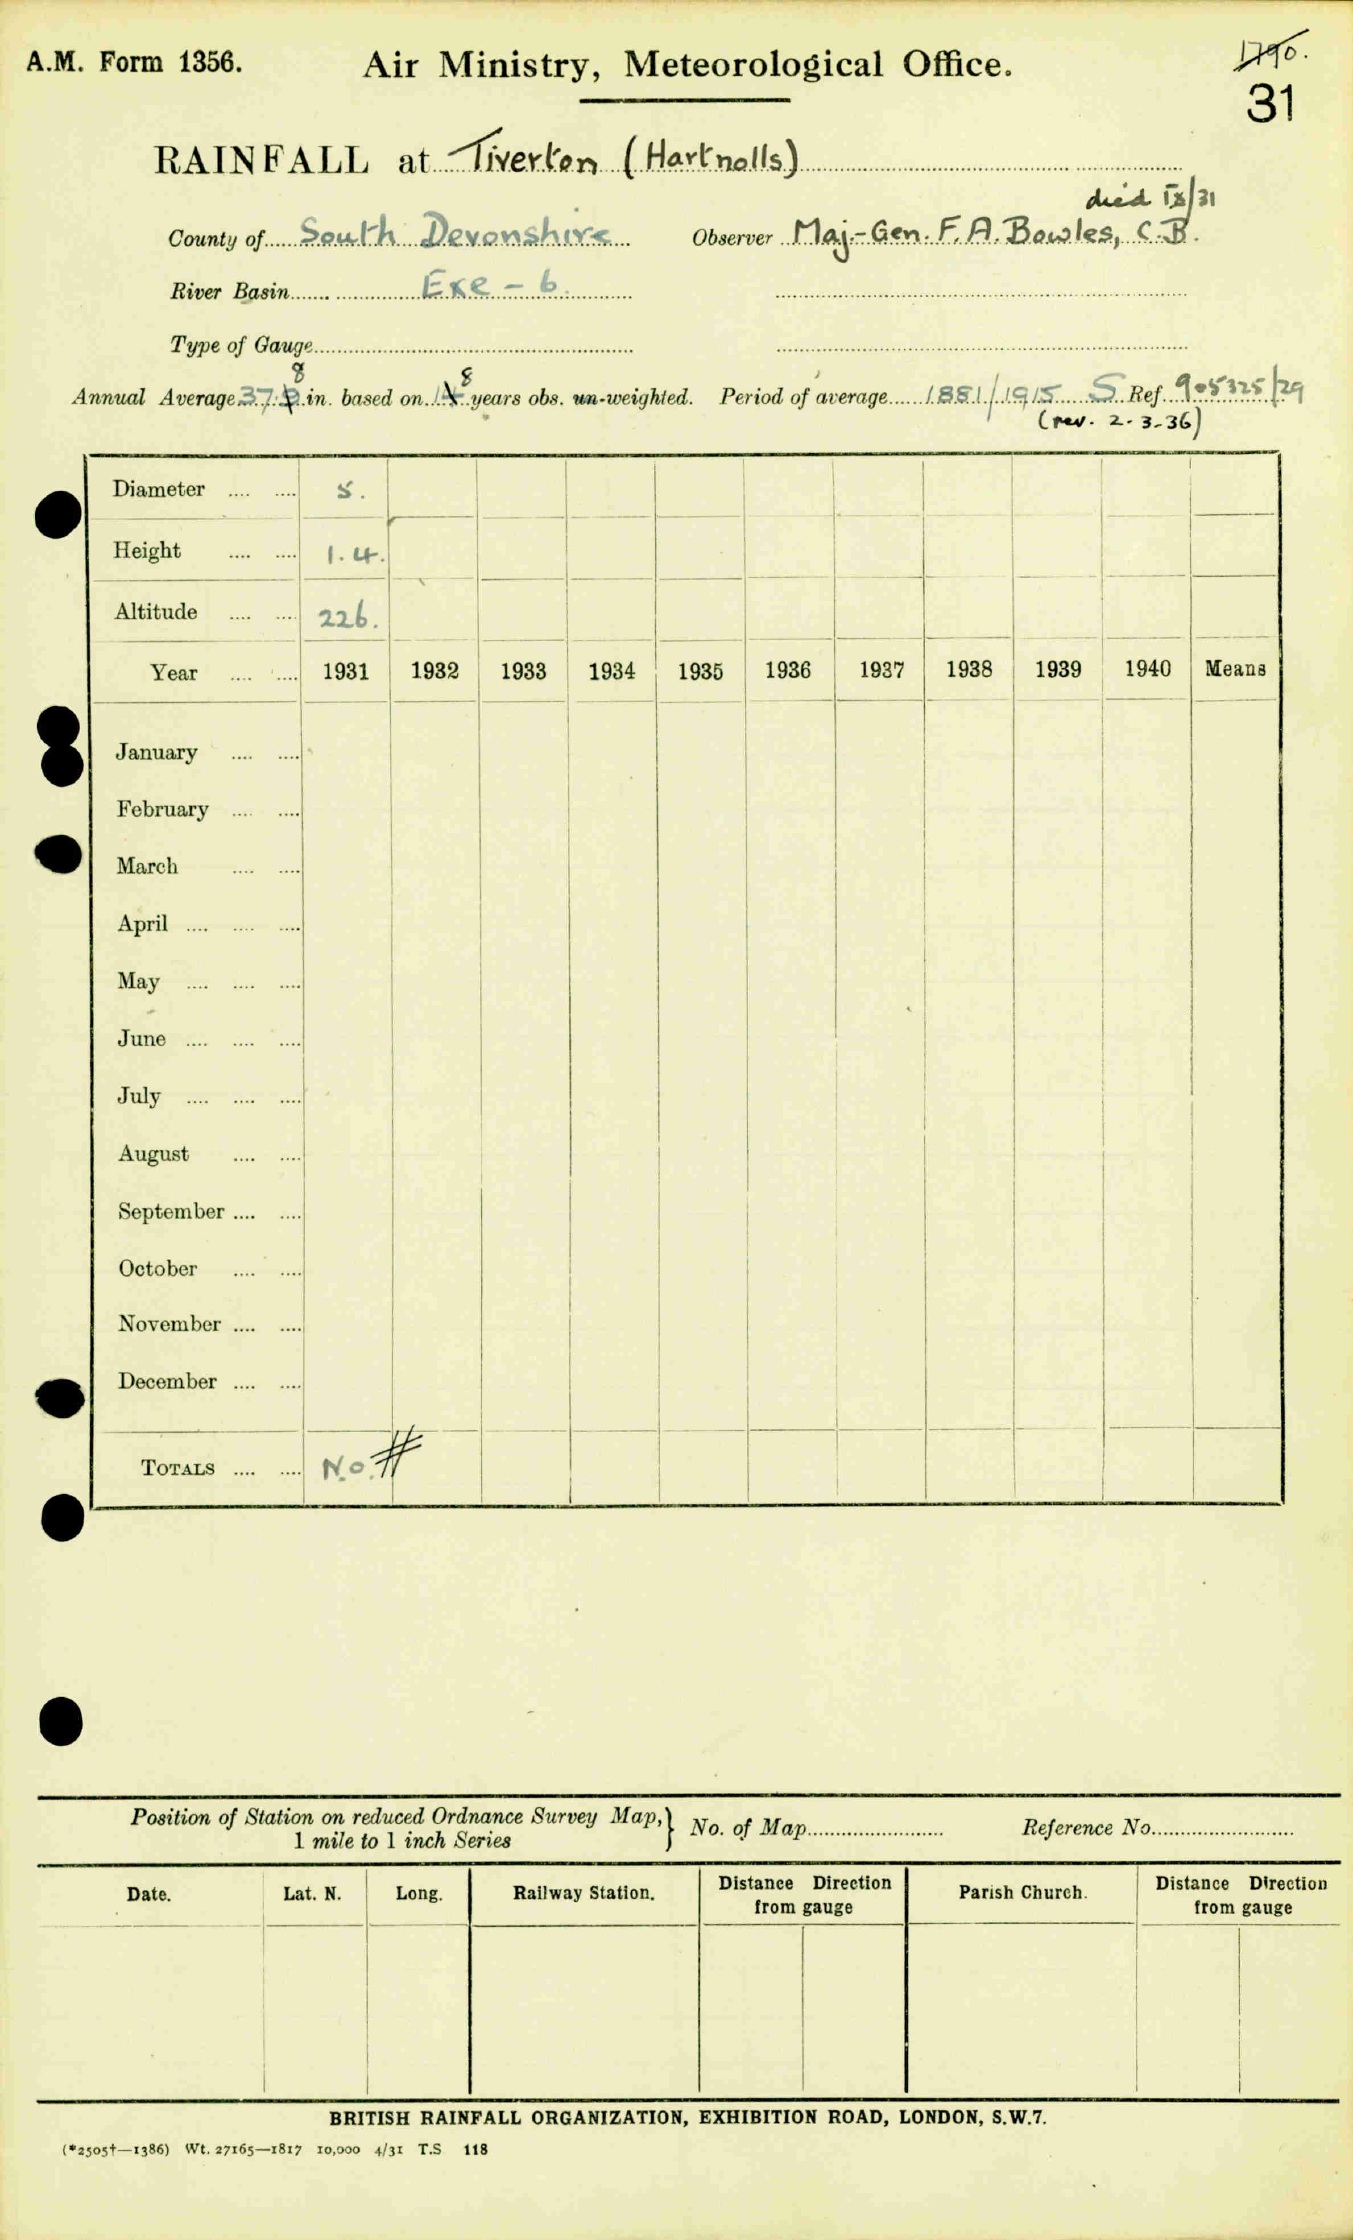 A.M. Form 1356. Air Ministry, Meteorological Office. 1790.
31
RAINFALL at Tiverton (Hartnolls)
died IX/31
County of South Devonshire Observer Maj.-Gen. F. A. Bowles, C.B.
River Basin Exe - 6.
Type of Gauge
8 8
Annual Average 37. in. based on years obs. un-weighted. Period of average 1881/1915 S Ref. 905325/29
(rev. 2.3.36)
Diameter .... .... 5.
Height .... .... 1.4.
Altitude .... .... 226.
Year .... .... 1931 1932 1933 1934 1935 1936 1937 1938 1939 1940 Means
January .... ....
February .... ....
March .... ....
April .... .... ....
May .... .... ....
June .... .... ....
July .... .... ....
August .... ....
September .... ....
October .... ....
November .... ....
December .... ....
TOTALS .... .... N.O.#
Position of Station on reduced Ordnance Survey Map,} No. of Map Reference No.
1 mile to 1 inch Series
Date. Lat. N. Long. Railway Station. Distance Direction Parish Church. Distance Direction
from gauge from gauge
BRITISH RAINFALL ORGANIZATION, EXHIBITION ROAD, LONDON, S.W.7.
(*2505†—1386) Wt. 27165—1817 10,000 4/31 T.S 118